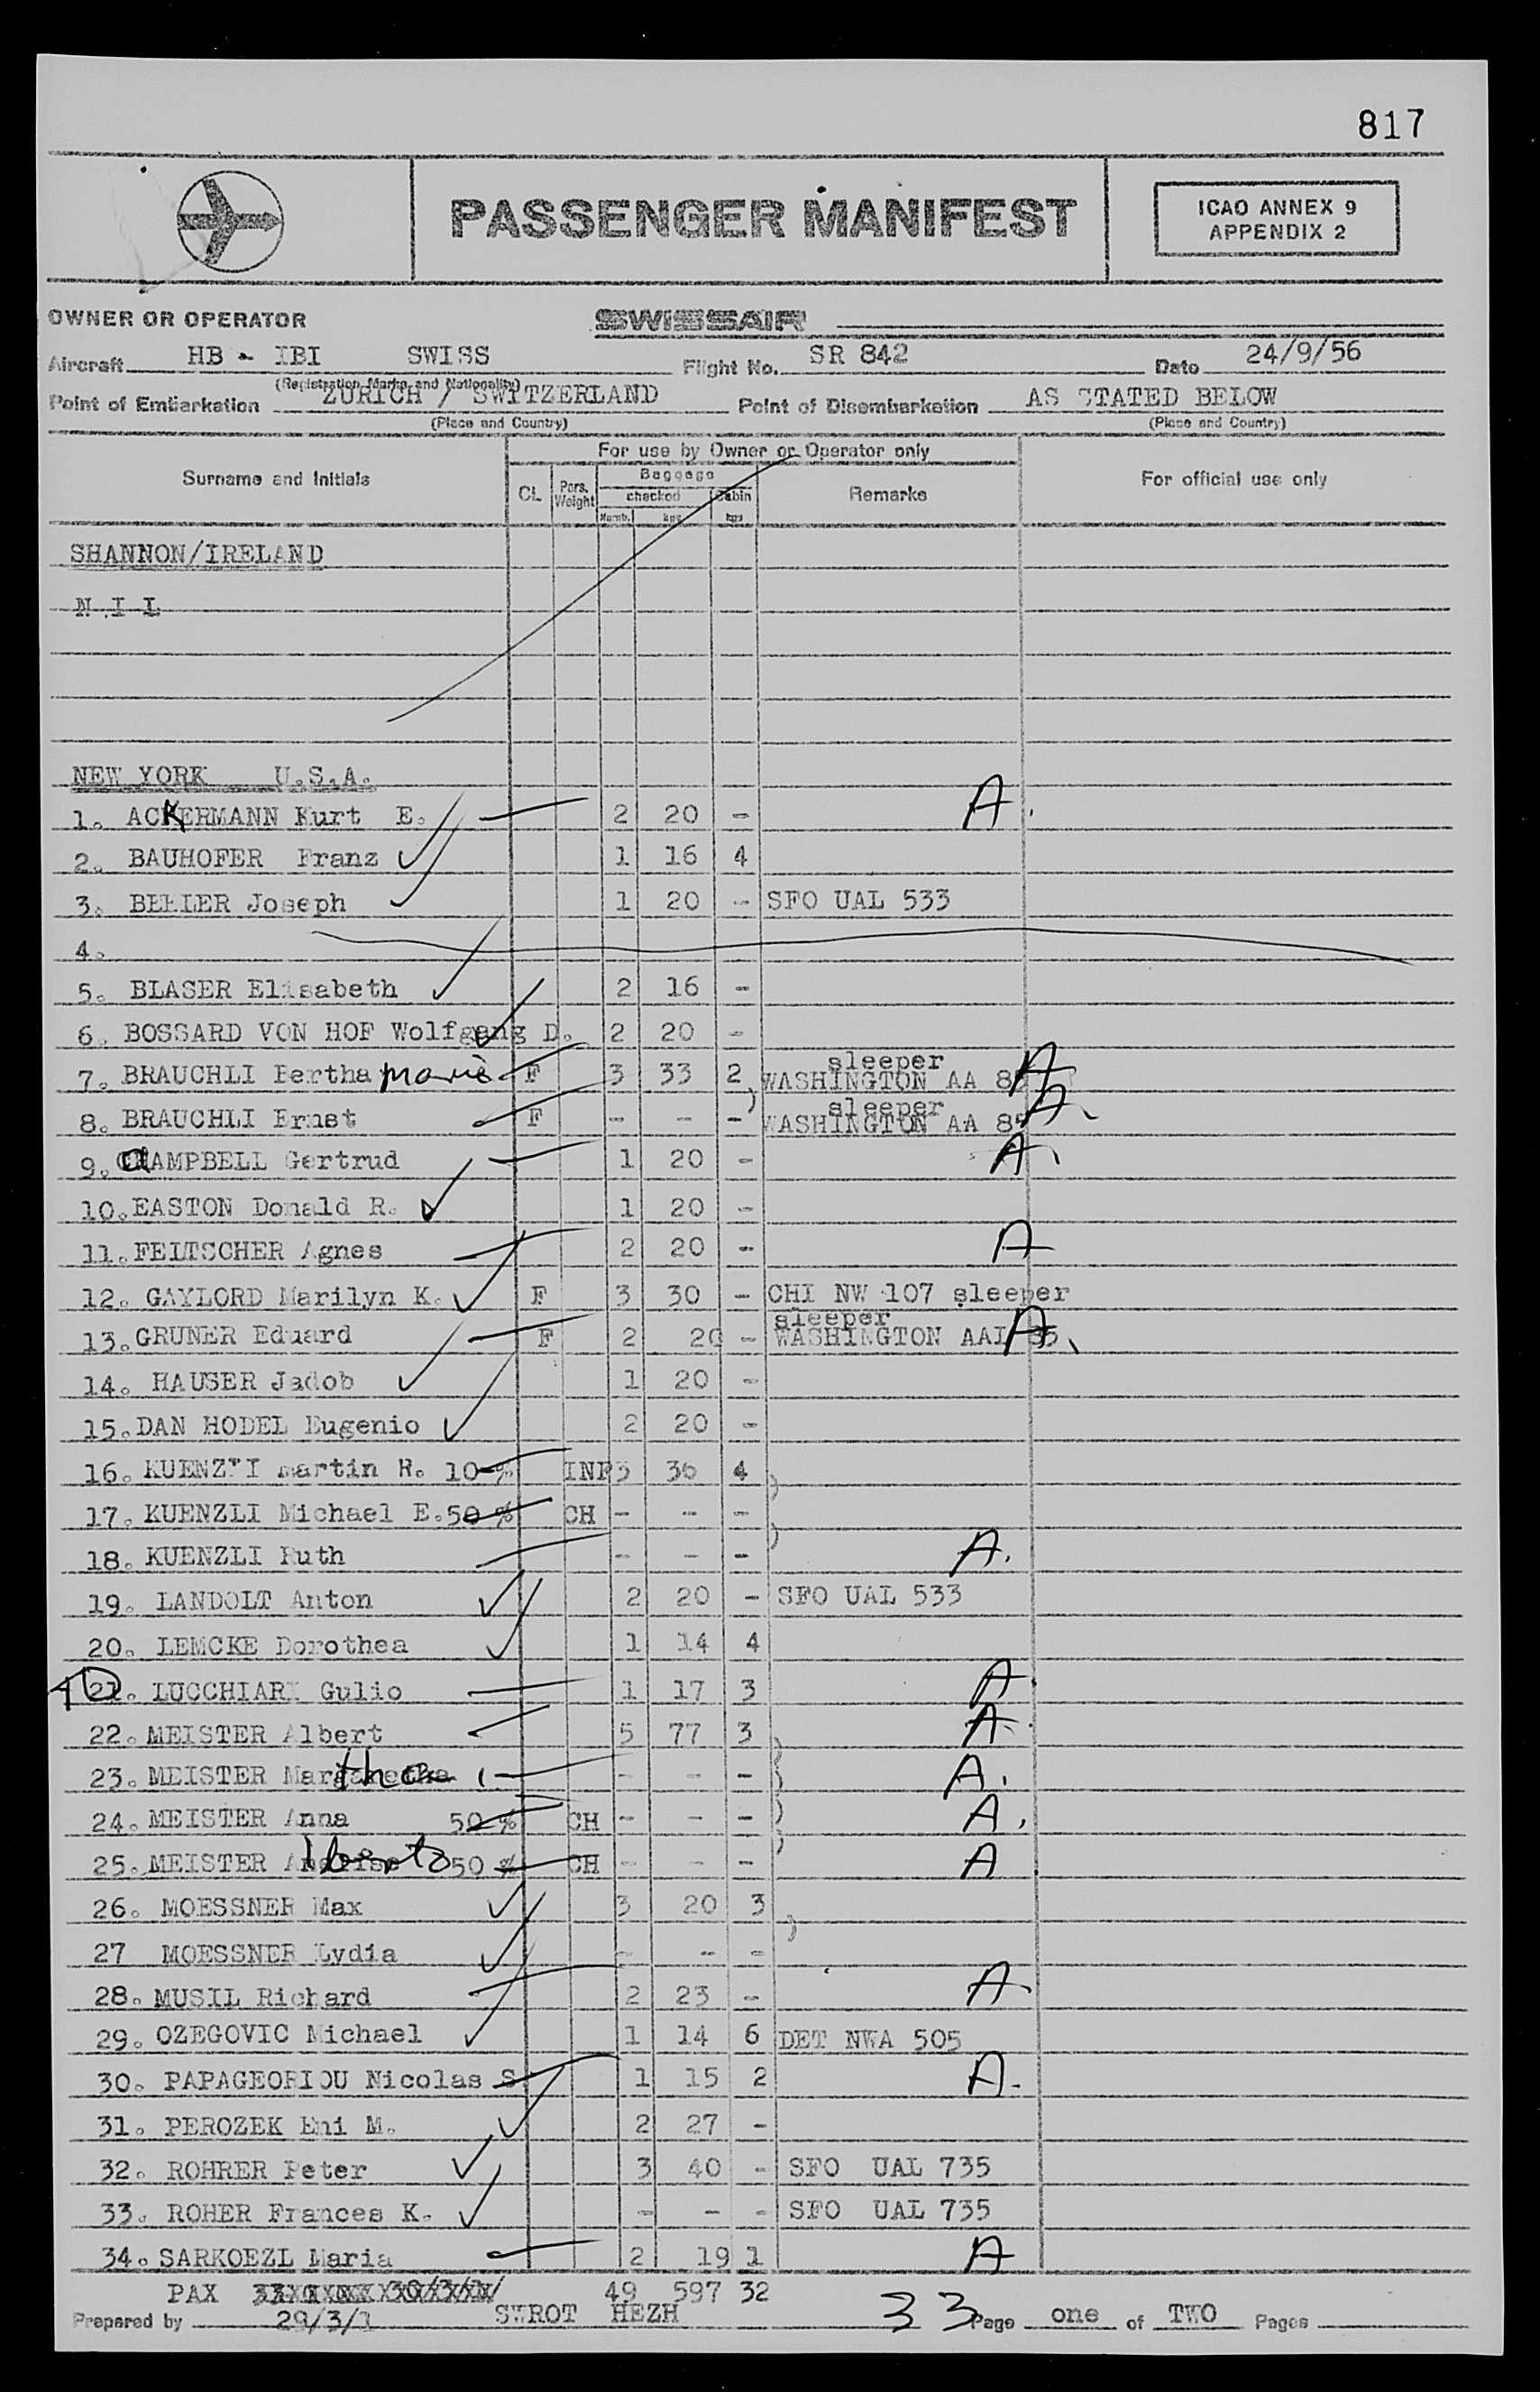 817
PASSENGER MANIFEST
ICAO ANNEX 9
APPENDIX 2
OWNER OR OPERATOR SWISSAIR
Aircraft HB - IBI SWISS Flight No. SR 842 Date 24/9/56
(Registration Marks and Nationality)
Point of Embarkation ZURICH / SWITZERLAND Point of Disembarkation AS STATED BELOW
(Place and Country) (Place and Country)
For use by Owner or Operator only
Surname and Initials CL Pers. Weight Baggage checked Numb. kgs Cabin kgs Remarks For official use only
SHANNON/IRELAND
N.I L
NEW YORK U.S.A.
1. ACKERMANN Kurt E. 2 20 - A.
2. BAUHOFER Franz 1 16 4
3. BELLER Joseph 1 20 - SFO UAL 533
4.
5. BLASER Elisabeth 2 16 -
6. BOSSARD VON HOF Wolfgang D. 2 20 -
7. BRAUCHLI Bertha marie F 3 33 2 sleeper WASHINGTON AA 85 A
8. BRAUCHLI Ernst F - - - sleeper WASHINGTON AA 85 A
9. CAMPBELL Gertrud 1 20 - A
10. EASTON Donald R. 1 20 -
11. FELTSCHER Agnes 2 20 - A
12. GAYLORD Marilyn K. F 3 30 - CHI NW 107 sleeper
13. GRUNER Eduard F 2 20 - sleeper WASHINGTON AAL 85 A
14. HAUSER Jadob 1 20 -
15. DAN HODEL Eugenio 2 20 -
16. KUENZLI Martin R. 10 % INF 3 36 4
17. KUENZLI Michael E. 50 % CH - - -
18. KUENZLI Ruth - - - A.
19. LANDOLT Anton 2 20 - SFO UAL 533
20. LEMCKE Dorothea 1 14 4
21. LUCCHIARI Gulio 1 17 3 A
22. MEISTER Albert 5 77 3 A
23. MEISTER Margaretha tha - - - A.
24. MEISTER Anna 50 % CH - - - A.
25. MEISTER 50 % CH - - - A
26. MOESSNER Max 3 20 3
27 MOESSNER Lydia - - -
28. MUSIL Richard 2 23 - A
29. OZEGOVIC Michael 1 14 6 DET NWA 505
30. PAPAGEORIOU Nicolas S 1 15 2 A.
31. PEROZEK Eni M. 2 27 -
32. ROHRER Peter 3 40 - SFO UAL 735
33. ROHER Frances K. - - - SFO UAL 735
34. SARKOEZI Maria 2 19 1 A
PAX 30/3/1/ 49 597 32
Prepared by 29/3/1 SWROT HEZH 33 Page one of TWO Pages